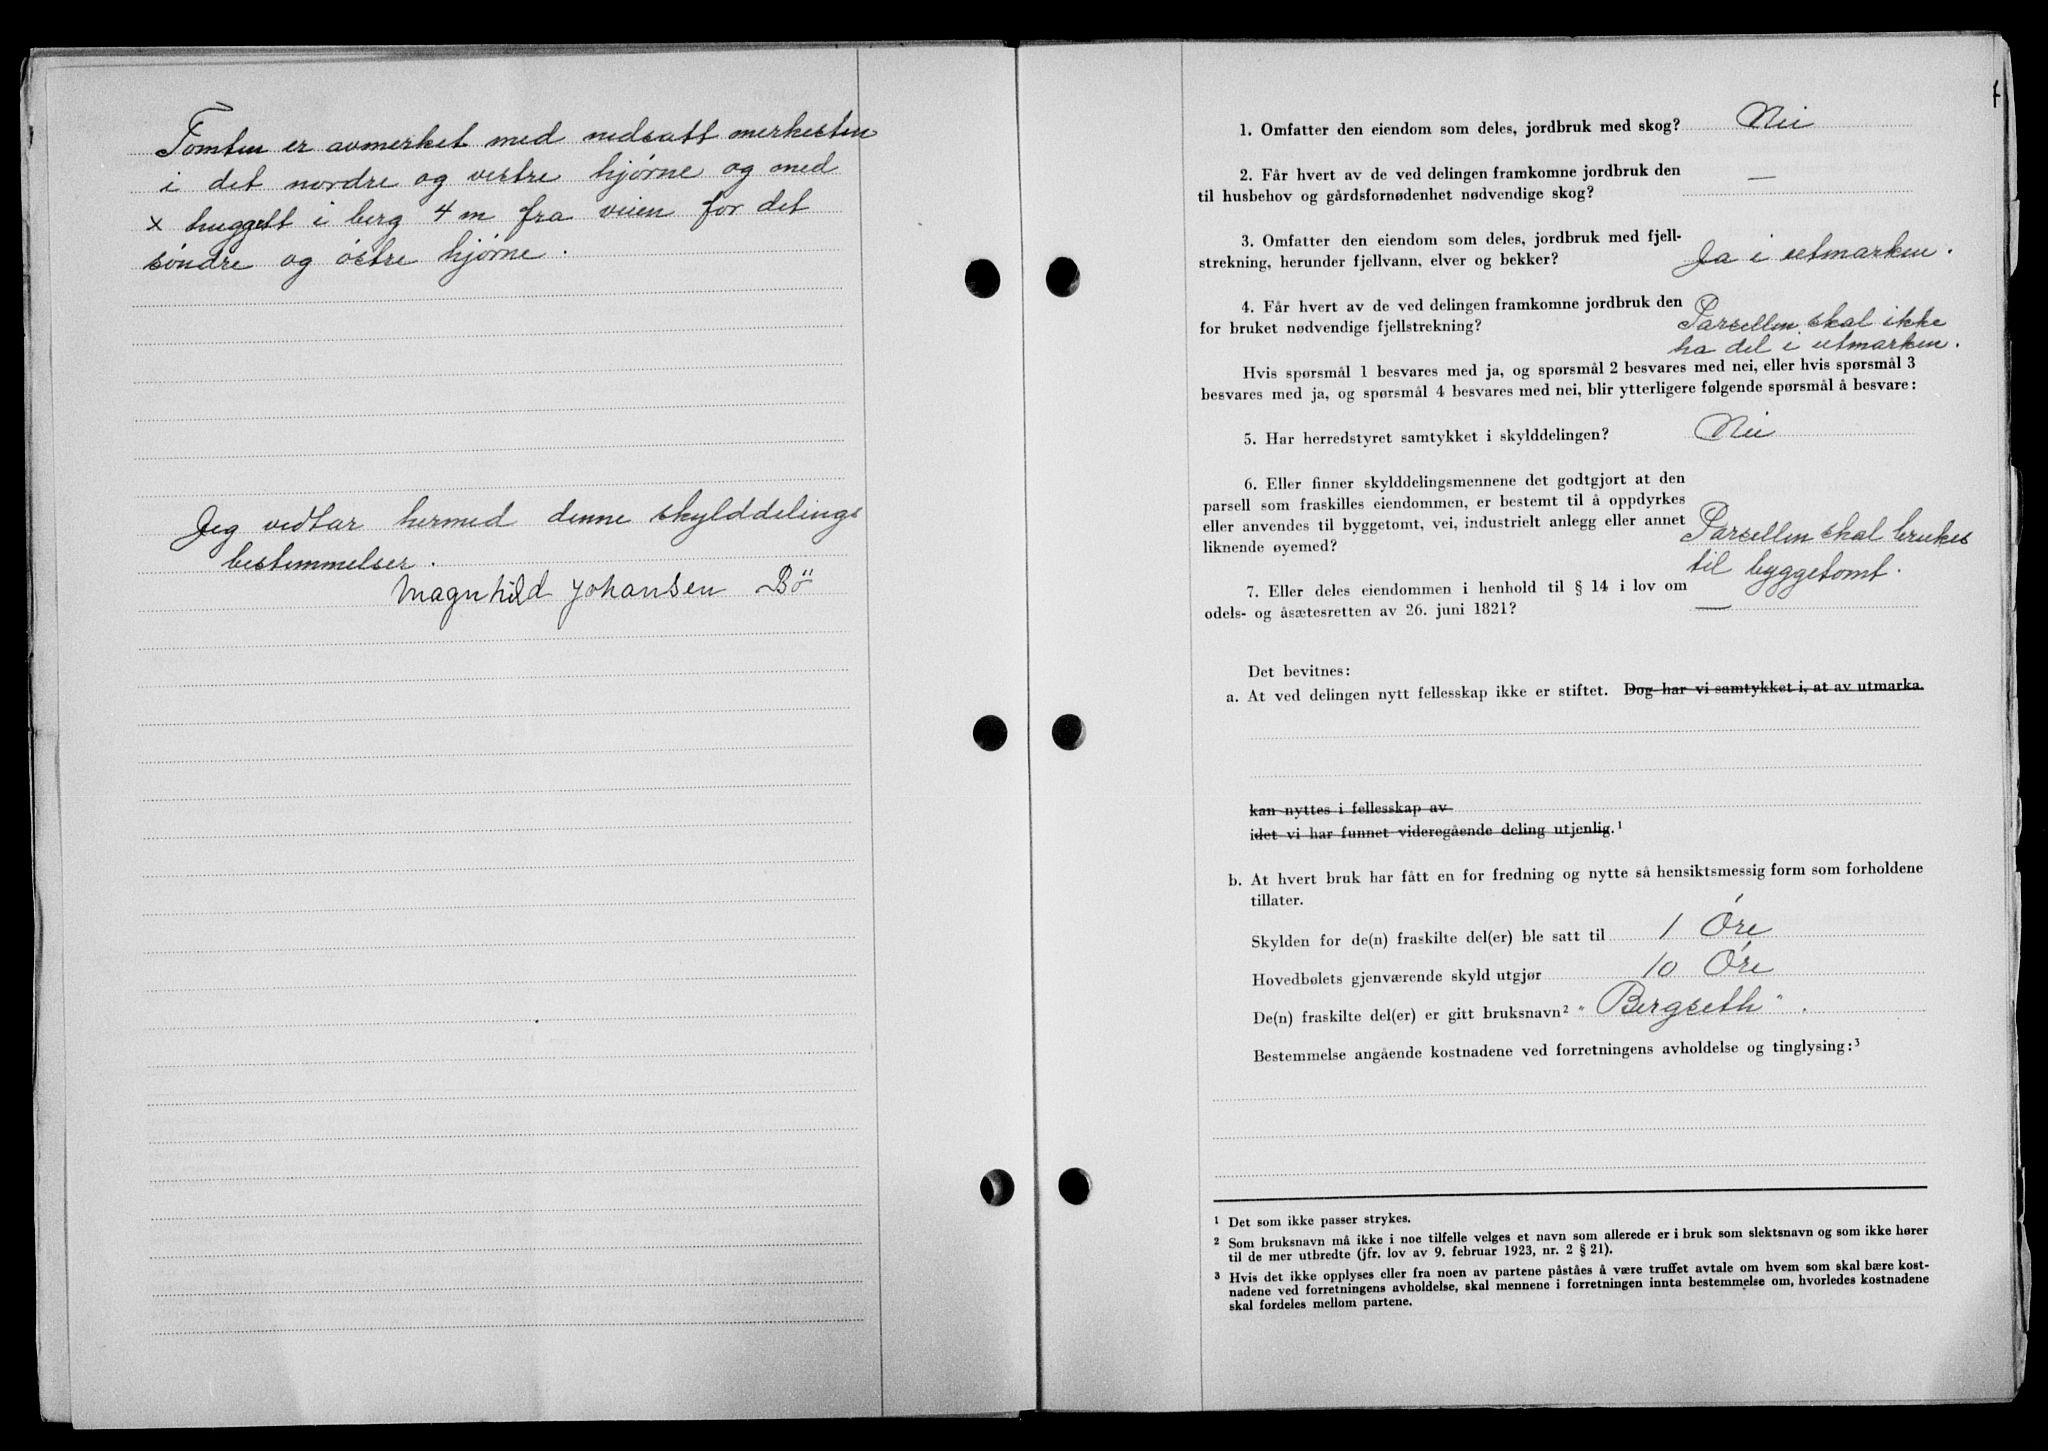 Tomten er avmerket med nedsatt merkesten
i det nordre og vestre hjørne og med
x hugget i berg 4 m fra veien for det
søndre og østre hjørne.
Jeg vedtar hermed denne skylddelings
bestemmelser.
Magnhild Johansen Bö
1. Omfatter den eiendom som deles, jordbruk med skog? Nei
2. Får hvert av de ved delingen framkomne jordbruk den
til husbehov og gårdsfornødenhet nødvendige skog? —
3. Omfatter den eiendom som deles, jordbruk med fjell-
strekning, herunder fjellvann, elver og bekker? Ja i utmarken.
4. Får hvert av de ved delingen framkomne jordbruk den
for bruket nødvendige fjellstrekning? Parsellen skal ikke
ha del i utmarken.
Hvis spørsmål 1 besvares med ja, og spørsmål 2 besvares med nei, eller hvis spørsmål 3
besvares med ja, og spørsmål 4 besvares med nei, blir ytterligere følgende spørsmål å besvare:
5. Har herredstyret samtykket i skylddelingen? Nei
6. Eller finner skylddelingsmennene det godtgjort at den
parsell som fraskilles eiendommen, er bestemt til å oppdyrkes
eller anvendes til byggetomt, vei, industrielt anlegg eller annet
liknende øyemed? Parsellen skal brukes
til byggetomt.
7. Eller deles eiendommen i henhold til § 14 i lov om
odels- og åsætesretten av 26. juni 1821? —
Det bevitnes:
a. At ved delingen nytt fellesskap ikke er stiftet. Dog har vi samtykket i, at av utmarka.
kan nyttes i fellesskap av
idet vi har funnet videregående deling utjenlig.¹
b. At hvert bruk har fått en for fredning og nytte så hensiktsmessig form som forholdene
tillater.
Skylden for de(n) fraskilte del(er) ble satt til 1 Øre
Hovedbølets gjenværende skyld utgjør 10 Øre
De(n) fraskilte del(er) er gitt bruksnavn² "Bergseth".
Bestemmelse angående kostnadene ved forretningens avholdelse og tinglysing:³
¹ Det som ikke passer strykes.
² Som bruksnavn må ikke i noe tilfelle velges et navn som allerede er i bruk som slektsnavn og som ikke hører
til de mer utbredte (jfr. lov av 9. februar 1923, nr. 2 § 21).
³ Hvis det ikke opplyses eller fra noen av partene påståes å være truffet avtale om hvem som skal bære kost-
nadene ved forretningens avholdelse, skal mennene i forretningen innta bestemmelse om, hvorledes kostnadene
skal fordeles mellom partene.